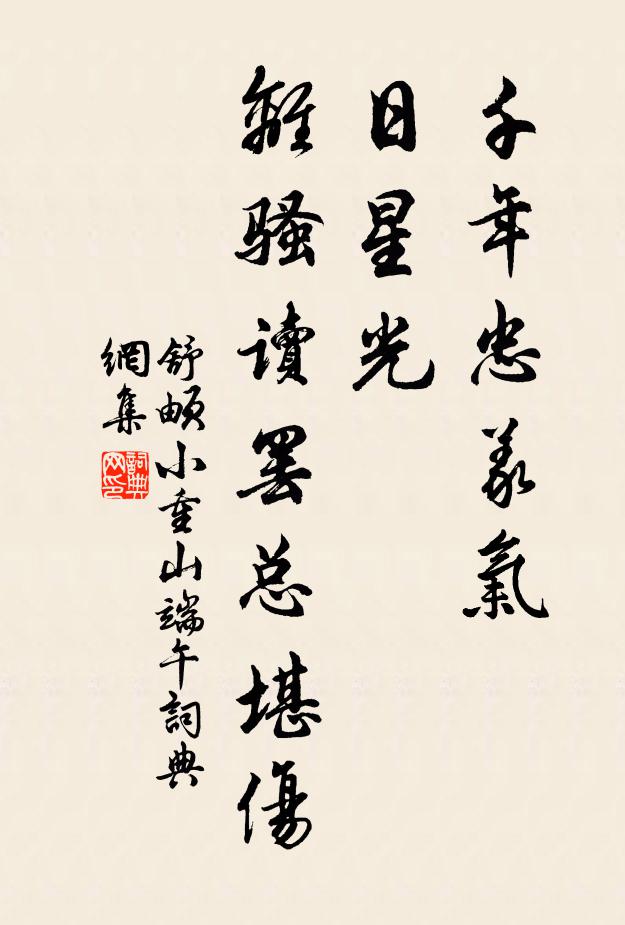 千年忠義氣
日星光
離騷讀罷总堪傷
舒頔小重山端午詞典
網集
詞典網印